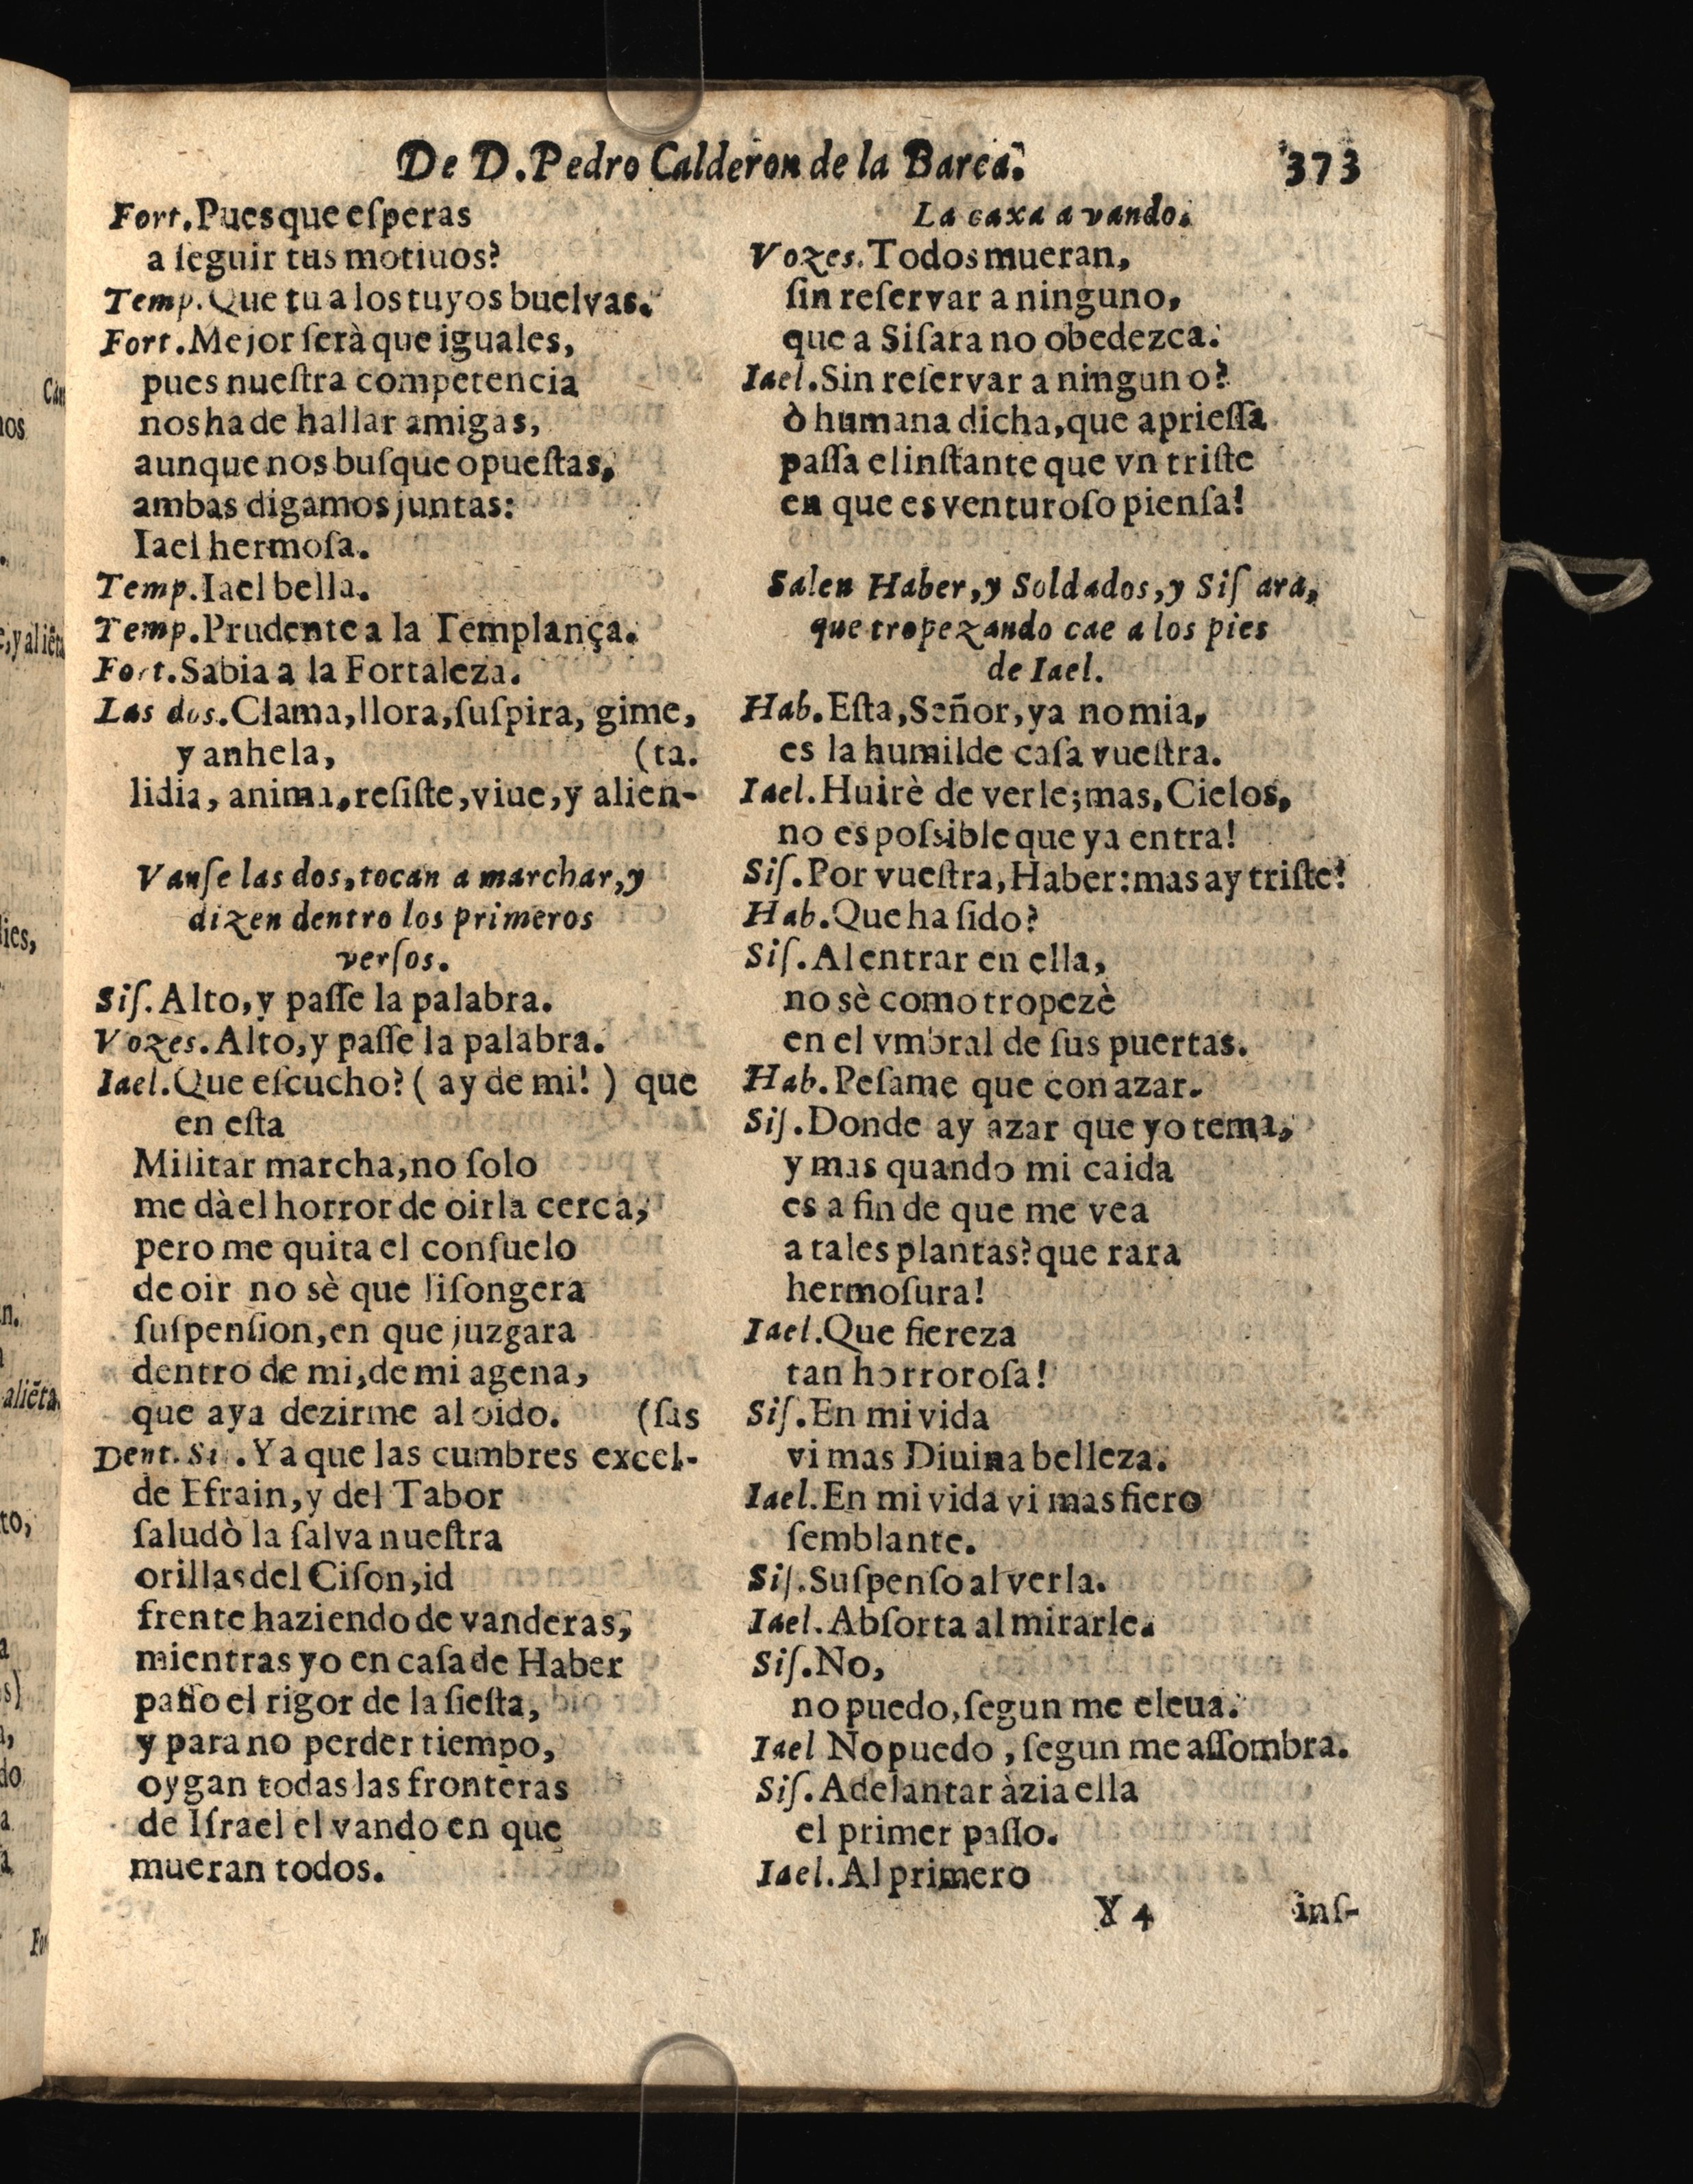 De D. Pedro Calderon de la Barca.
373
Fort. Pues que eſperas
a ſeguir tus motiuos?
Temp. Que tu a los tuyos buelvas.
Fort. Mejor ſerà que iguales,
pues nueſtra competencia
nos ha de hallar amigas,
aunque nos buſque opueſtas,
ambas digamos juntas:
Iael hermoſa.
Temp. Iael bella.
Temp. Prudente a la Templança.
Fort. Sabia a la Fortaleza.
Las dos. Clama, llora, ſuſpira, gime,
y anhela, (ta.
lidia, anima, reſiſte, viue, y alien-
Vanſe las dos, tocan a marchar, y
dizen dentro los primeros
verſos.
Siſ. Alto, y paſſe la palabra.
Vozes. Alto, y paſſe la palabra.
Iael. Que eſcucho? ( ay de mi! ) que
en eſta
Militar marcha, no ſolo
me dà el horror de oirla cerca,
pero me quita el conſuelo
de oir no sè que liſongera
ſuſpenſion, en que juzgara
dentro de mi, de mi agena,
que aya dezirme al oido. (ſas
Dent. Si . Ya que las cumbres excel-
de Efrain, y del Tabor
ſaludò la ſalva nueſtra
orillas del Ciſon, id
frente haziendo de vanderas,
mientras yo en caſa de Haber
paſſo el rigor de la ſieſta,
y para no perder tiempo,
oygan todas las fronteras
de Iſrael el vando en que
mueran todos.
La caxa a vando.
Vozes. Todos mueran,
ſin reſervar a ninguno,
que a Siſara no obedezca.
Iael. Sin reſervar a ninguno?
ò humana dicha, que aprieſſa
paſſa el inſtante que vn triſte
en que es venturoſo pienſa!
Salen Haber, y Soldados, y Siſara,
que tropezando cae a los pies
de Iael.
Hab. Eſta, Señor, ya no mia,
es la humilde caſa vueſtra.
Iael. Huirè de verle; mas, Cielos,
no es poſsible que ya entra!
Siſ. Por vueſtra, Haber: mas ay triſte!
Hab. Que ha ſido?
Siſ. Al entrar en ella,
no sè como tropezè
en el vmbral de ſus puertas.
Hab. Peſame que con azar.
Siſ. Donde ay azar que yo tema,
y mas quando mi caida
es a fin de que me vea
a tales plantas? que rara
hermoſura!
Iael. Que fiereza
tan horroroſa!
Siſ. En mi vida
vi mas Diuina belleza.
Iael. En mi vida vi mas fiero
ſemblante.
Siſ. Suſpenſo al verla.
Iael. Abſorta al mirarle.
Siſ. No,
no puedo, ſegun me eleua.
Iael No puedo, ſegun me aſſombra.
Siſ. Adelantar àzia ella
el primer paſſo.
Iael. Al primero
Y 4
inſ-